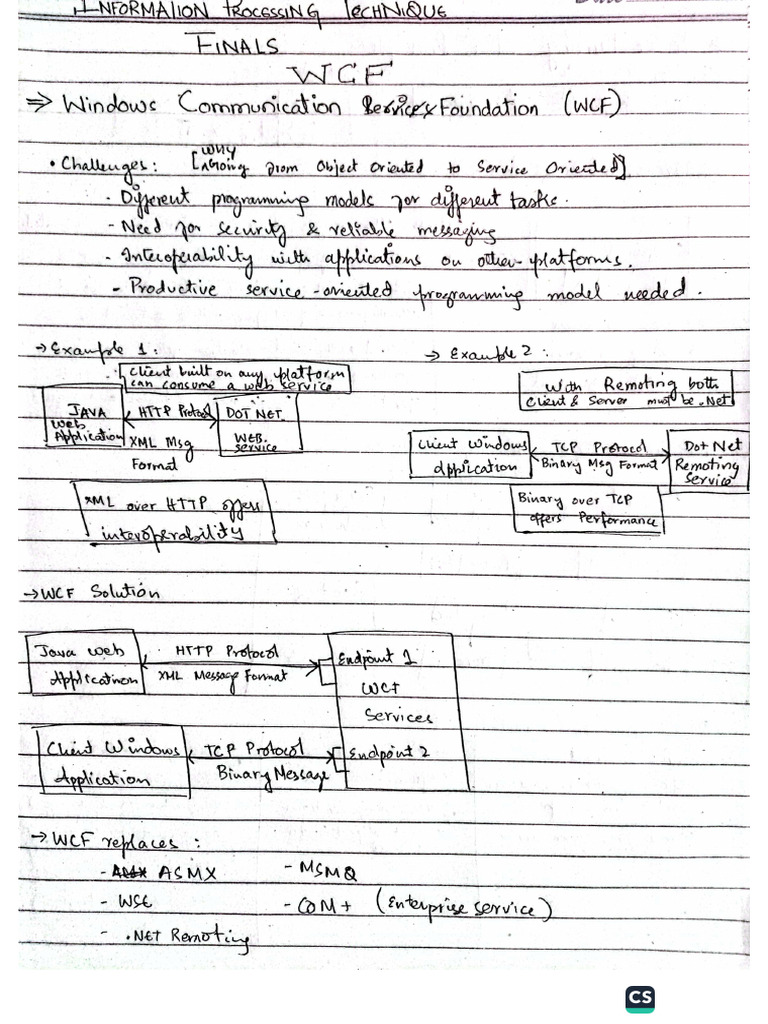 INFORMATION PROCESSING TECHNIQUE
FINALS
WCF
⇒ Windows Communication Services Foundation (WCF)
• Challenges: [Why Going from Object Oriented to Service Oriented]
- Different programming models for different tasks.
- Need for security & reliable messaging
- Interoperability with applications on other platforms.
- Productive service-oriented programming model needed.
→ Example 1:
Client built on any platform
can consume a web service
JAVA
Web
Application
HTTP Protocol
XML Msg
Format
DOT NET
WEB.
service
XML over HTTP offers
interoperability
→ Example 2:
With Remoting both
Client & Server must be .Net
Client Windows
Application
TCP Protocol
Binary Msg Format
Dot Net
Remoting
Service
Binary over TCP
offers Performance
→ WCF Solution
Java web
Application
HTTP Protocol
XML Message Format
Endpoint 1
WCF
Services
Client Windows
Application
TCP Protocol
Binary Message
Endpoint 2
→ WCF replaces:
- ASMX
- MSMQ
- WSE
- COM+ (Enterprise service)
- .NET Remoting
CS